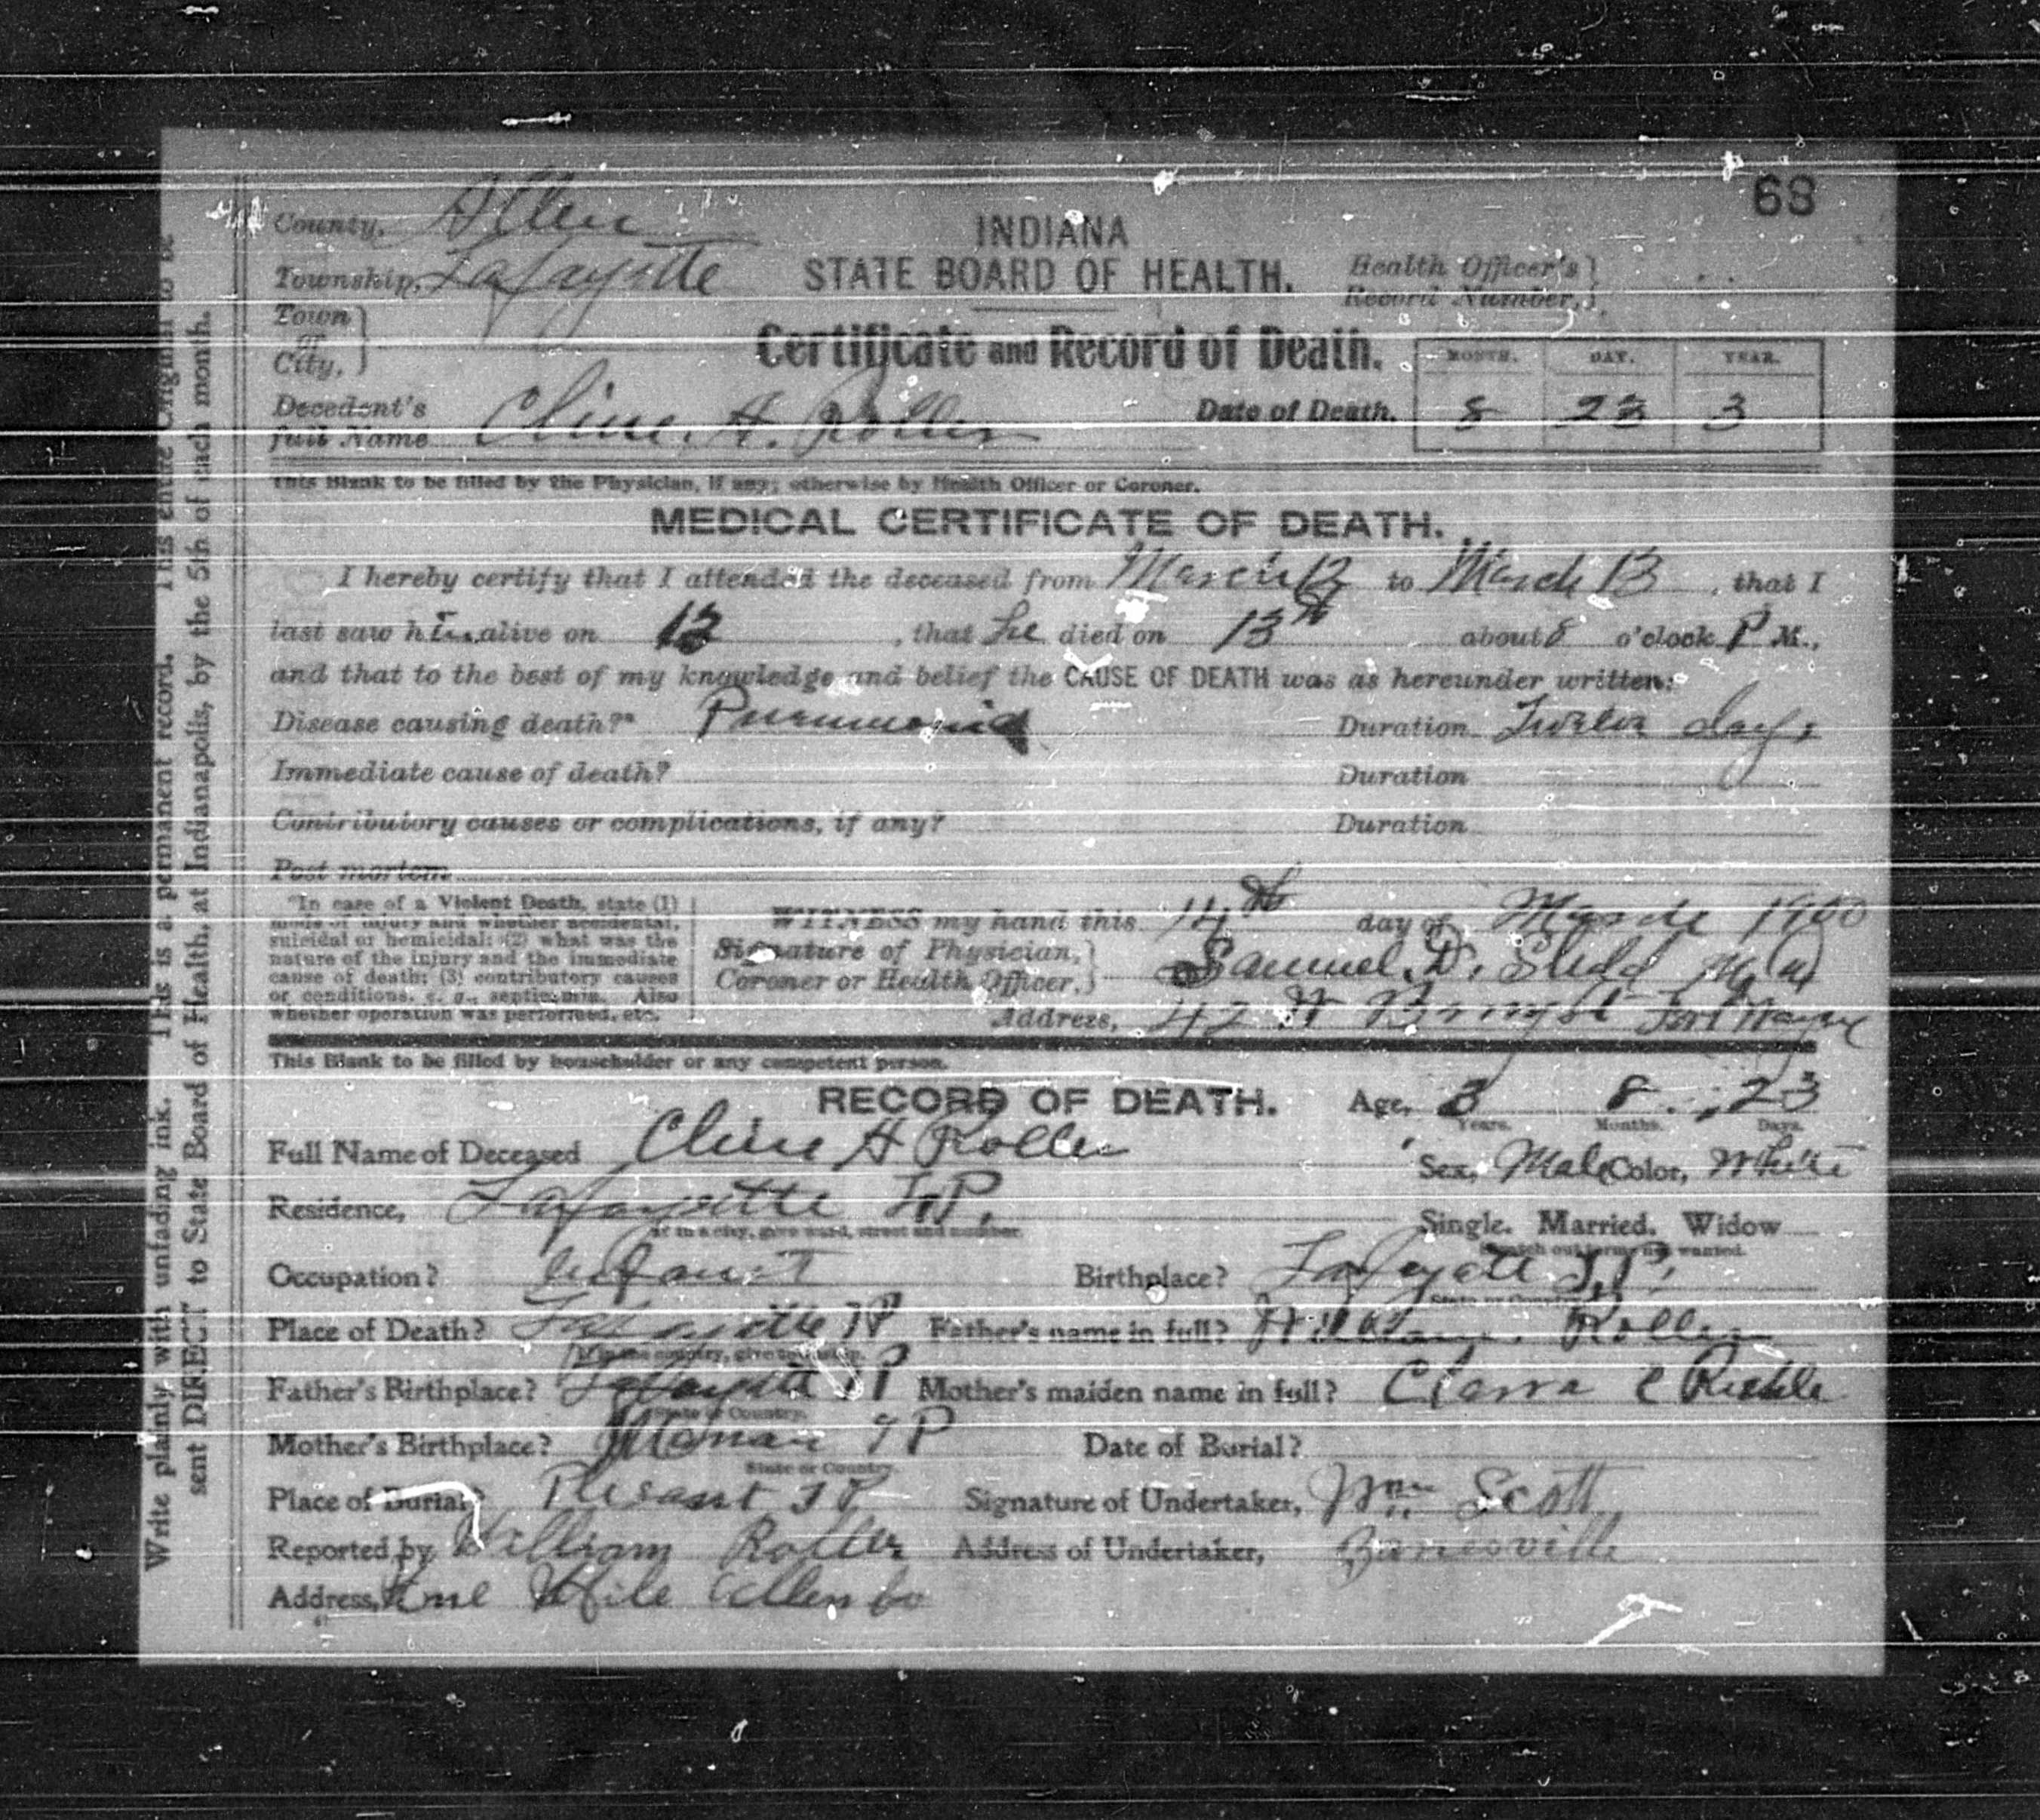 68
County, Allen
Township, Lafayette
Town or City,
INDIANA
STATE BOARD OF HEALTH.
Health Officer's Record Number,
Certificate and Record of Death.
Decedent's full Name Cline. H. Roller
Date of Death. MONTH. DAY. YEAR.
8 23 3
This Blank to be filled by the Physician, if any; otherwise by Health Officer or Coroner.
MEDICAL CERTIFICATE OF DEATH.
I hereby certify that I attended the deceased from March 12 to March 13, that I
last saw him alive on 12, that he died on 13th about 8 o'clock P M.,
and that to the best of my knowledge and belief the CAUSE OF DEATH was as hereunder written:
Disease causing death?* Pneumonia Duration Twelve days
Immediate cause of death? Duration
Contributory causes or complications, if any? Duration
Post mortem
*In case of a Violent Death, state (1)
mode of injury and whether accidental,
suicidal or homicidal; (2) what was the
nature of the injury and the immediate
cause of death; (3) contributory causes
or conditions, e. g., septicæmia. Also
whether operation was performed, etc.
WITNESS my hand this 14th day of March 1900
Signature of Physician, Coroner or Health Officer, Samuel D. M.D.
Address, 42 W Fort Wayne
This Blank to be filled by householder or any competent person.
RECORD OF DEATH. Age, 3 8 23
Years. Months. Days.
Full Name of Deceased Cline H Roller Sex, Male Color, White
Residence, Lafayette T.P. Single. Married. Widow
If in a city, give ward, street and number. Scratch out terms not wanted.
Occupation? infant Birthplace? Lafayette T.P.
State or Country.
Place of Death? Lafayette TP Father's name in full? William. Roller
If in the country, give township.
Father's Birthplace? Lafayette TP Mother's maiden name in full? Clarra E
State or Country.
Mother's Birthplace? TP Date of Burial?
State or Country.
Place of Burial? Plesant TP Signature of Undertaker, Wm. Scott
Reported by William Roller Address of Undertaker, Zanesville
Address, Allen Co
Write plainly with unfading ink. This is a permanent record. This entire Original to be
sent DIRECT to State Board of Health, at Indianapolis, by the 5th of each month.